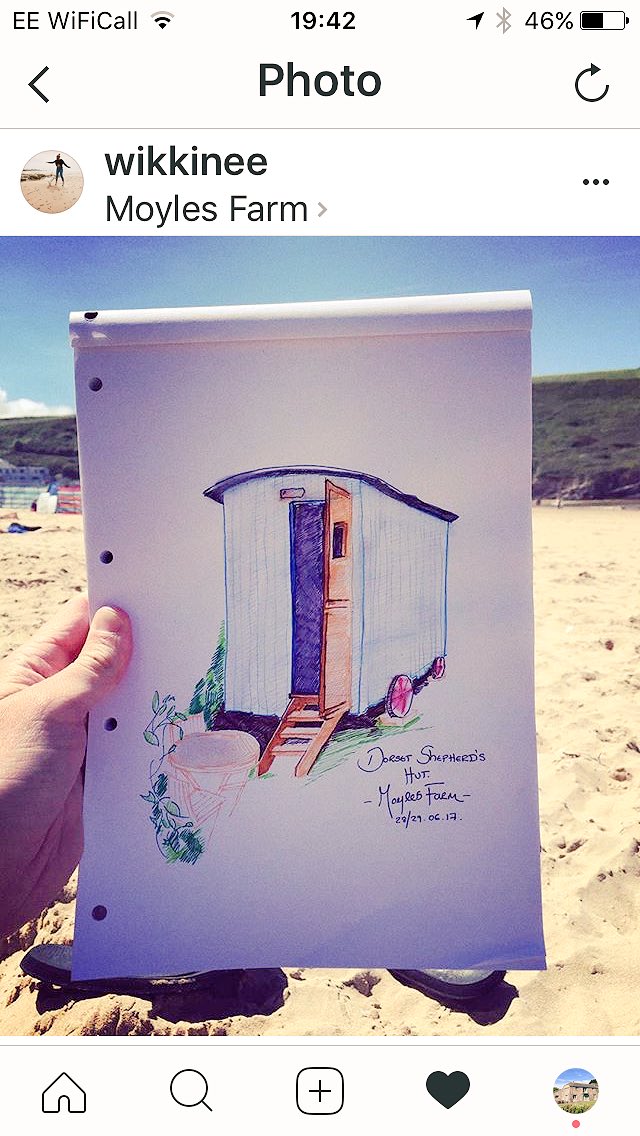 EE WiFiCall 19:42 46%
Photo
wikkinee
Moyles Farm
Dorset Shepherd's
Hut.
- Moyles Farm -
28/29.06.17.